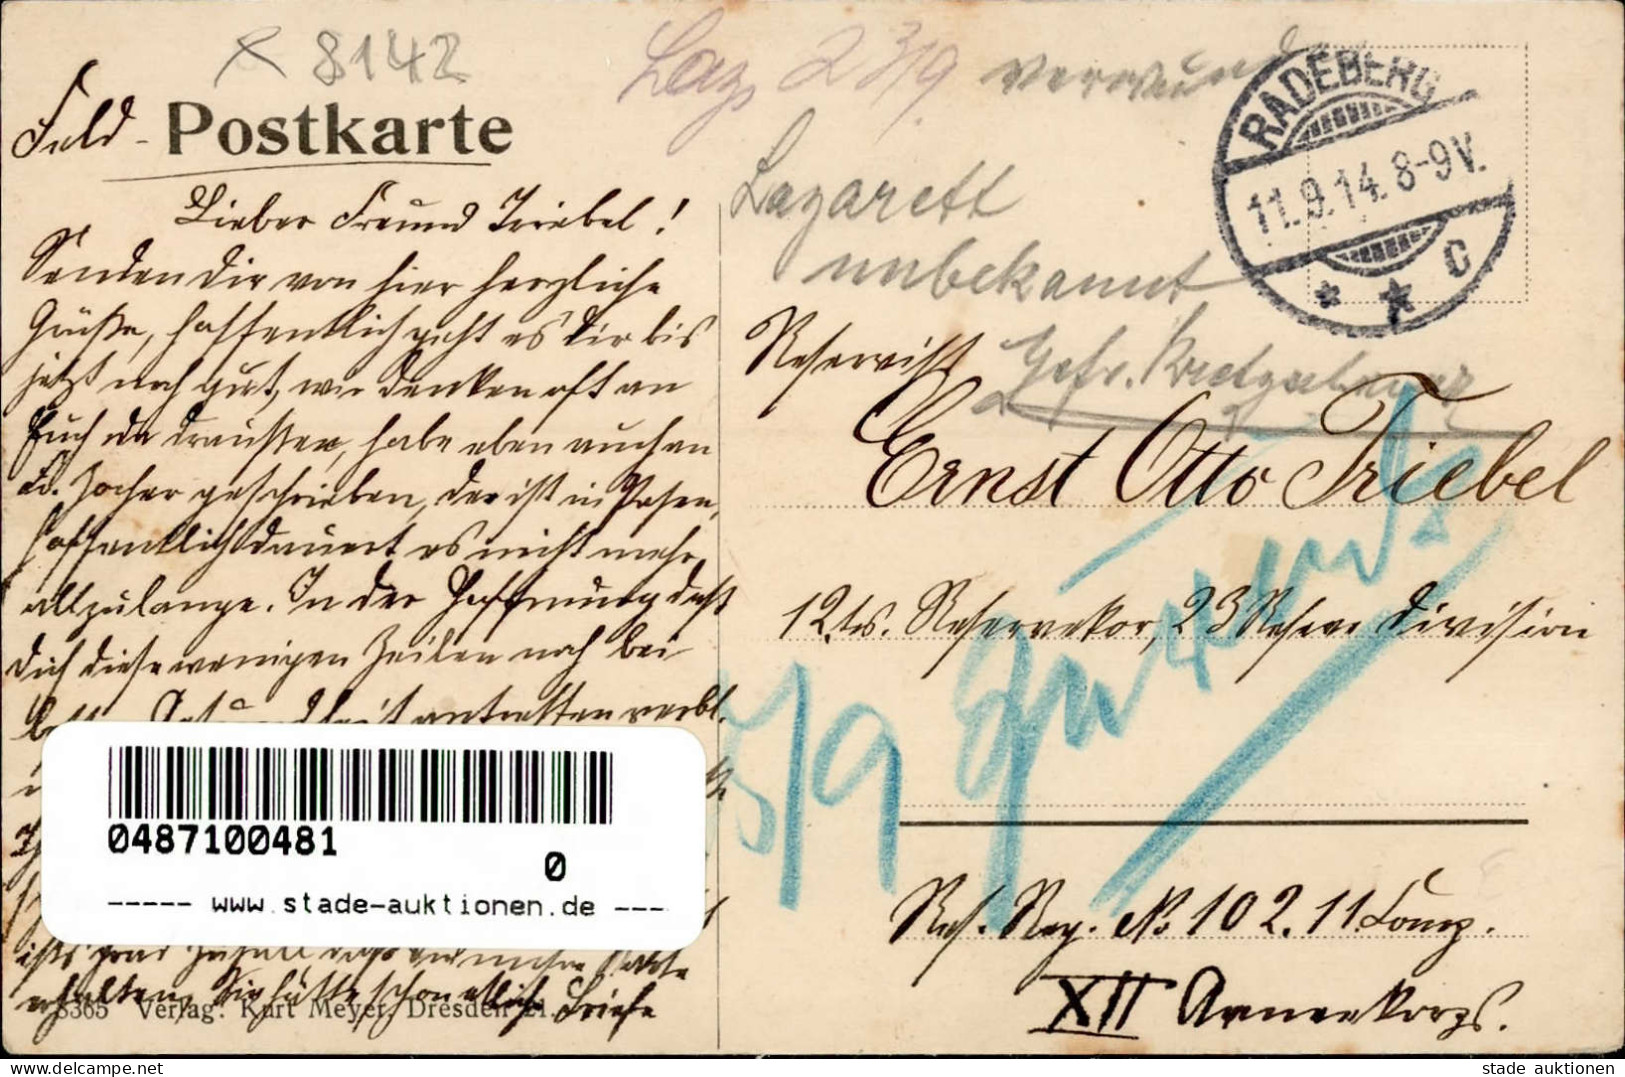 x 8142
Laz. 23/9 verwund
Feld-Postkarte
RADEBERG
11.9.14.8-9V.
* * C
Lazarett
unbekannt
Lieber Freund Triebel!
Senden Dir von hier herzliche
Grüße, hoffentlich geht es Dir bis
jetzt noch gut, wir denken oft an
Euch da draußen, habe eben auch an
Zocher geschrieben, der ist in Posen,
hoffentlich dauert es nicht mehr
allzulange. In der Hoffnung daß
Dich diese wenigen Zeilen noch bei
Gesundheit antreffen verbl.
erhalten, Sie hätte schon etliche Briefe
Reservist
Gefr.
Ernst Otto Triebel
12tes. Reservekor, 23 Reserve Division
5/9 Zurück
Res. Reg. No 102. 11 Comp.
XII Armeekorps.
0487100481
0
----- www.stade-auktionen.de ---
S365 Verlag: Kurt Meyer, Dresden 21.
stade auktionen